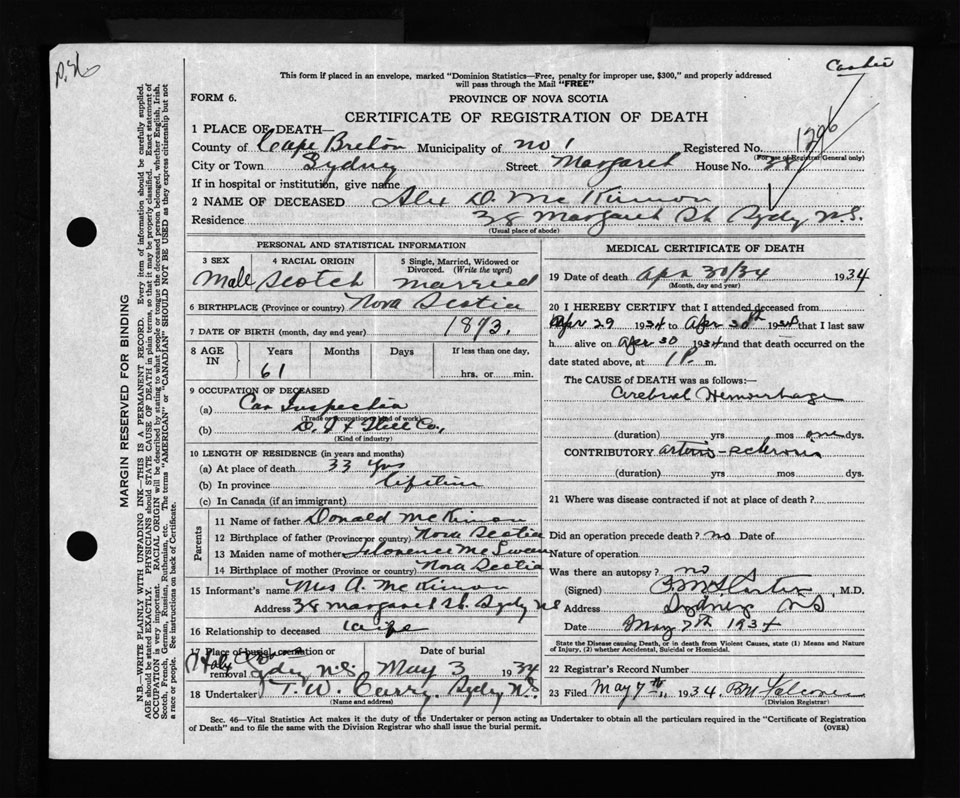 P. 36
This form if placed in an envelope, marked "Dominion Statistics—Free, penalty for improper use, $300," and properly addressed
will pass through the Mail "FREE"
FORM 6.
PROVINCE OF NOVA SCOTIA
CERTIFICATE OF REGISTRATION OF DEATH
1 PLACE OF DEATH—
County of Cape Breton Municipality of no 1 Registered No. 1296
(For use of Registrar General only)
City or Town Sydney Street Margaret House No. 38
If in hospital or institution, give name
2 NAME OF DECEASED Alex D. McKinnon
Residence 38 Margaret St. Sydney N.S.
(Usual place of abode)
PERSONAL AND STATISTICAL INFORMATION
3 SEX 4 RACIAL ORIGIN 5 Single, Married, Widowed or Divorced. (Write the word)
Male Scotch married
6 BIRTHPLACE (Province or country) Nova Scotia
7 DATE OF BIRTH (month, day and year) 1873.
8 AGE IN Years Months Days If less than one day,
61 hrs. or min.
9 OCCUPATION OF DECEASED
(a) Car Inspector
(Trade or occupation, kind of work)
(b) D. I & Steel Co.,
(Kind of industry)
10 LENGTH OF RESIDENCE (in years and months)
(a) At place of death 33 yrs
(b) In province lifetime
(c) In Canada (if an immigrant)
Parents
11 Name of father Donald McKinnon
12 Birthplace of father (Province or country) Nova Scotia
13 Maiden name of mother Florence McSween
14 Birthplace of mother (Province or country) Nova Scotia
15 Informant's name Mrs A. McKinnon
Address 38 Margaret St. Sydney NS
16 Relationship to deceased wife
17 Place of burial, cremation or removal Date of burial
Holy Cross Sydney N.S. May 3 1934
18 Undertaker T. W. Curry. Sydney N.S.
(Name and address)
MEDICAL CERTIFICATE OF DEATH
19 Date of death Apr 30/34 1934
(Month, day and year)
20 I HEREBY CERTIFY that I attended deceased from
Apr 29 1934 to Apr 30th 1934 that I last saw
h alive on Apr 30 1934 and that death occurred on the
date stated above, at 1 P. m.
The CAUSE of DEATH was as follows:—
Cerebral Hemorrhage
(duration) yrs mos one dys.
CONTRIBUTORY arterio-sclerosis
(duration) yrs. mos. dys.
21 Where was disease contracted if not at place of death?
Did an operation precede death? no Date of
Nature of operation
Was there an autopsy? no
(Signed) M.D.
Address Sydney NS
Date May 7th 1934
State the Disease causing Death, or in death from Violent Causes, state (1) Means and Nature
of Injury, (2) whether Accidental, Suicidal or Homicidal.
22 Registrar's Record Number
23 Filed May 7th, 1934
(Division Registrar)
Sec. 46—Vital Statistics Act makes it the duty of the Undertaker or person acting as Undertaker to obtain all the particulars required in the "Certificate of Registration
of Death" and to file the same with the Division Registrar who shall issue the burial permit. (OVER)
MARGIN RESERVED FOR BINDING
N.B.—WRITE PLAINLY WITH UNFADING INK—THIS IS A PERMANENT RECORD. Every item of information should be carefully supplied.
AGE should be stated EXACTLY. PHYSICIANS should STATE CAUSE OF DEATH in plain terms, so that it may be properly classified. Exact statement of
OCCUPATION is very important. RACIAL ORIGIN will be described by stating to what people or tongue the deceased person belonged, whether English, Irish,
Scotch, French, German, Russian, Ruthenian, etc. The terms "AMERICAN" or "CANADIAN" SHOULD NOT BE USED as they express citizenship but not
a race or people. See instructions on back of Certificate.